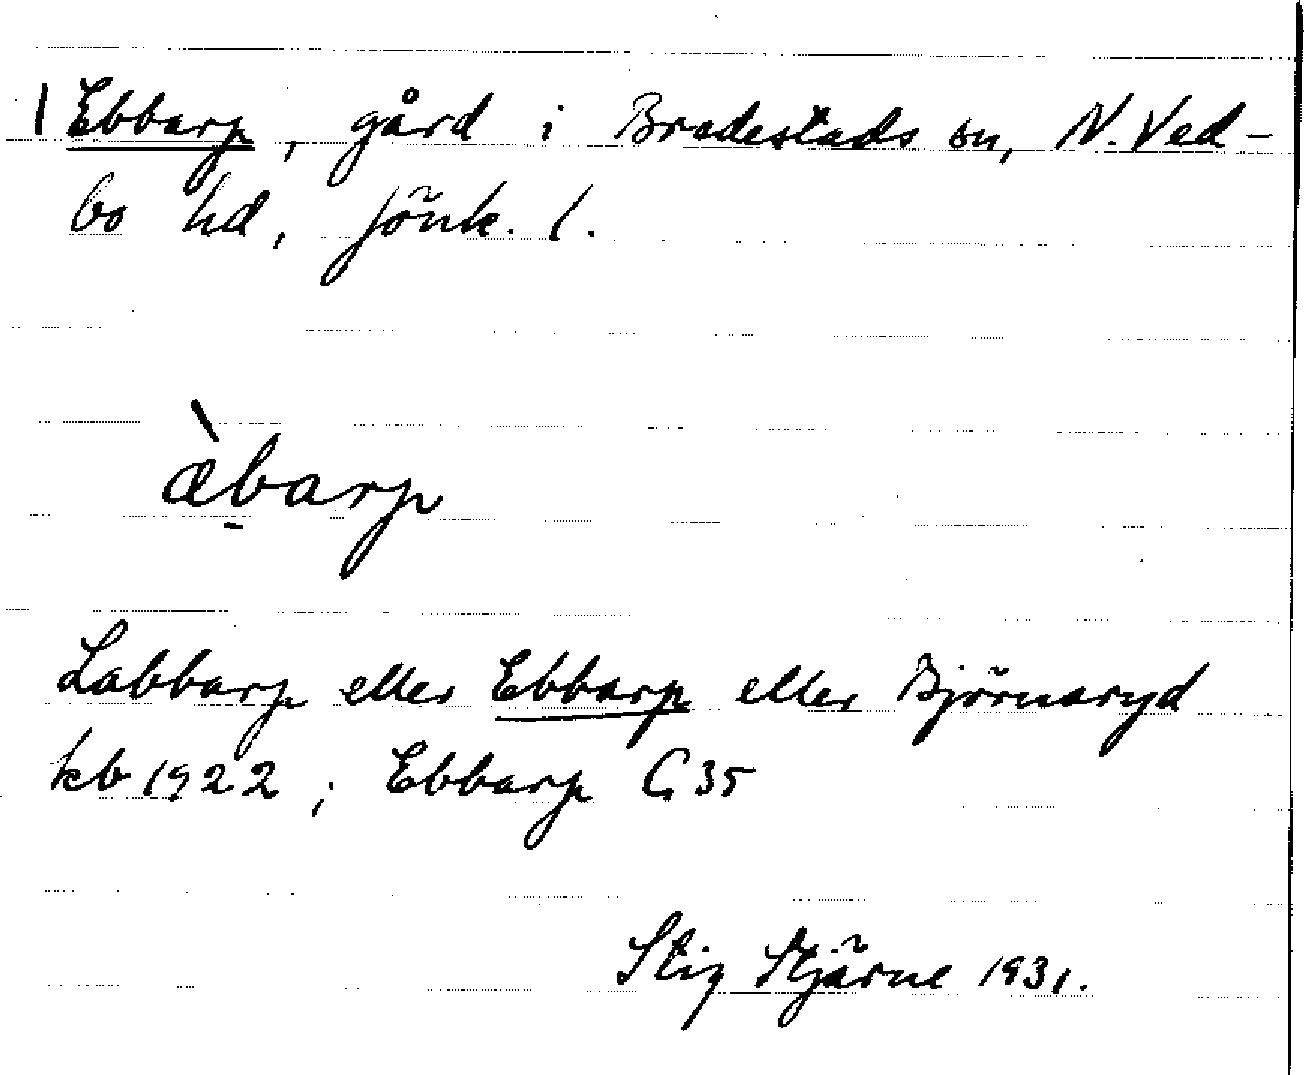 Ebbarp, gård i Bredestads sn, N. Ved-
bo hd, Jönk. l.
æ̀b̠arp
Labbarp eller Ebbarp eller Björnaryd
kb 1922; Ebbarp G 35
Stig Stjärne 1931.